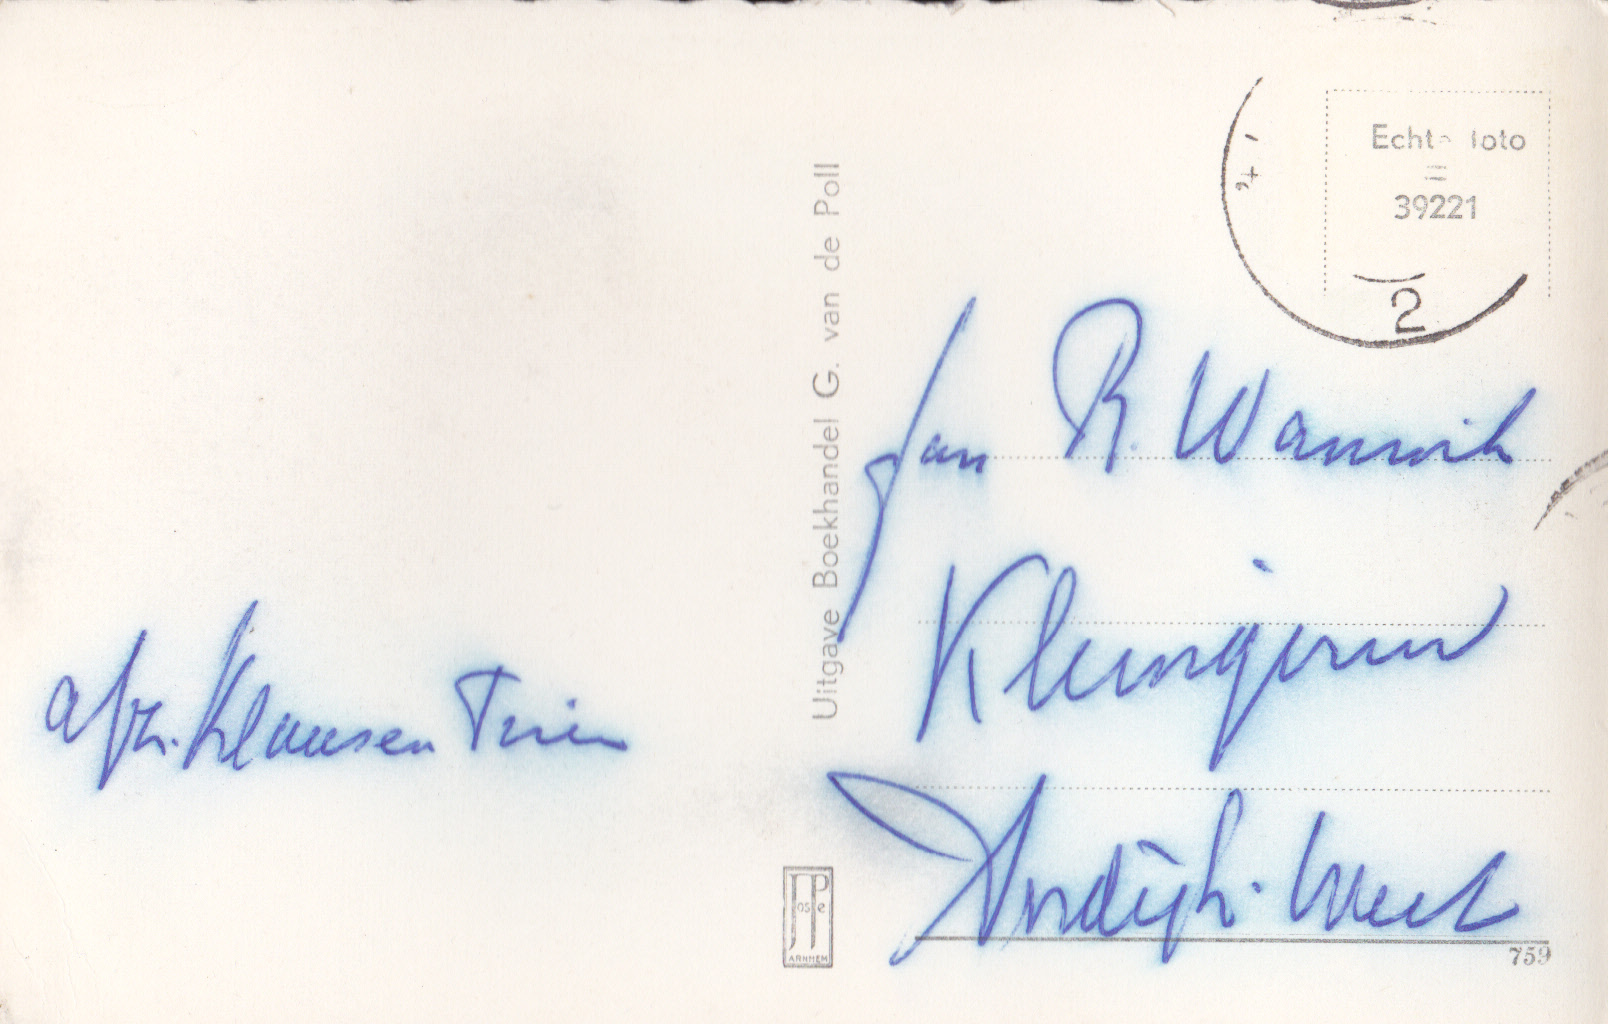 Echte foto
39221
2
Jan R. Wannik
afz. Klaassen Trien
Andijk-West
Uitgave Boekhandel G. van de Poll
JosPe
ARNHEM
759